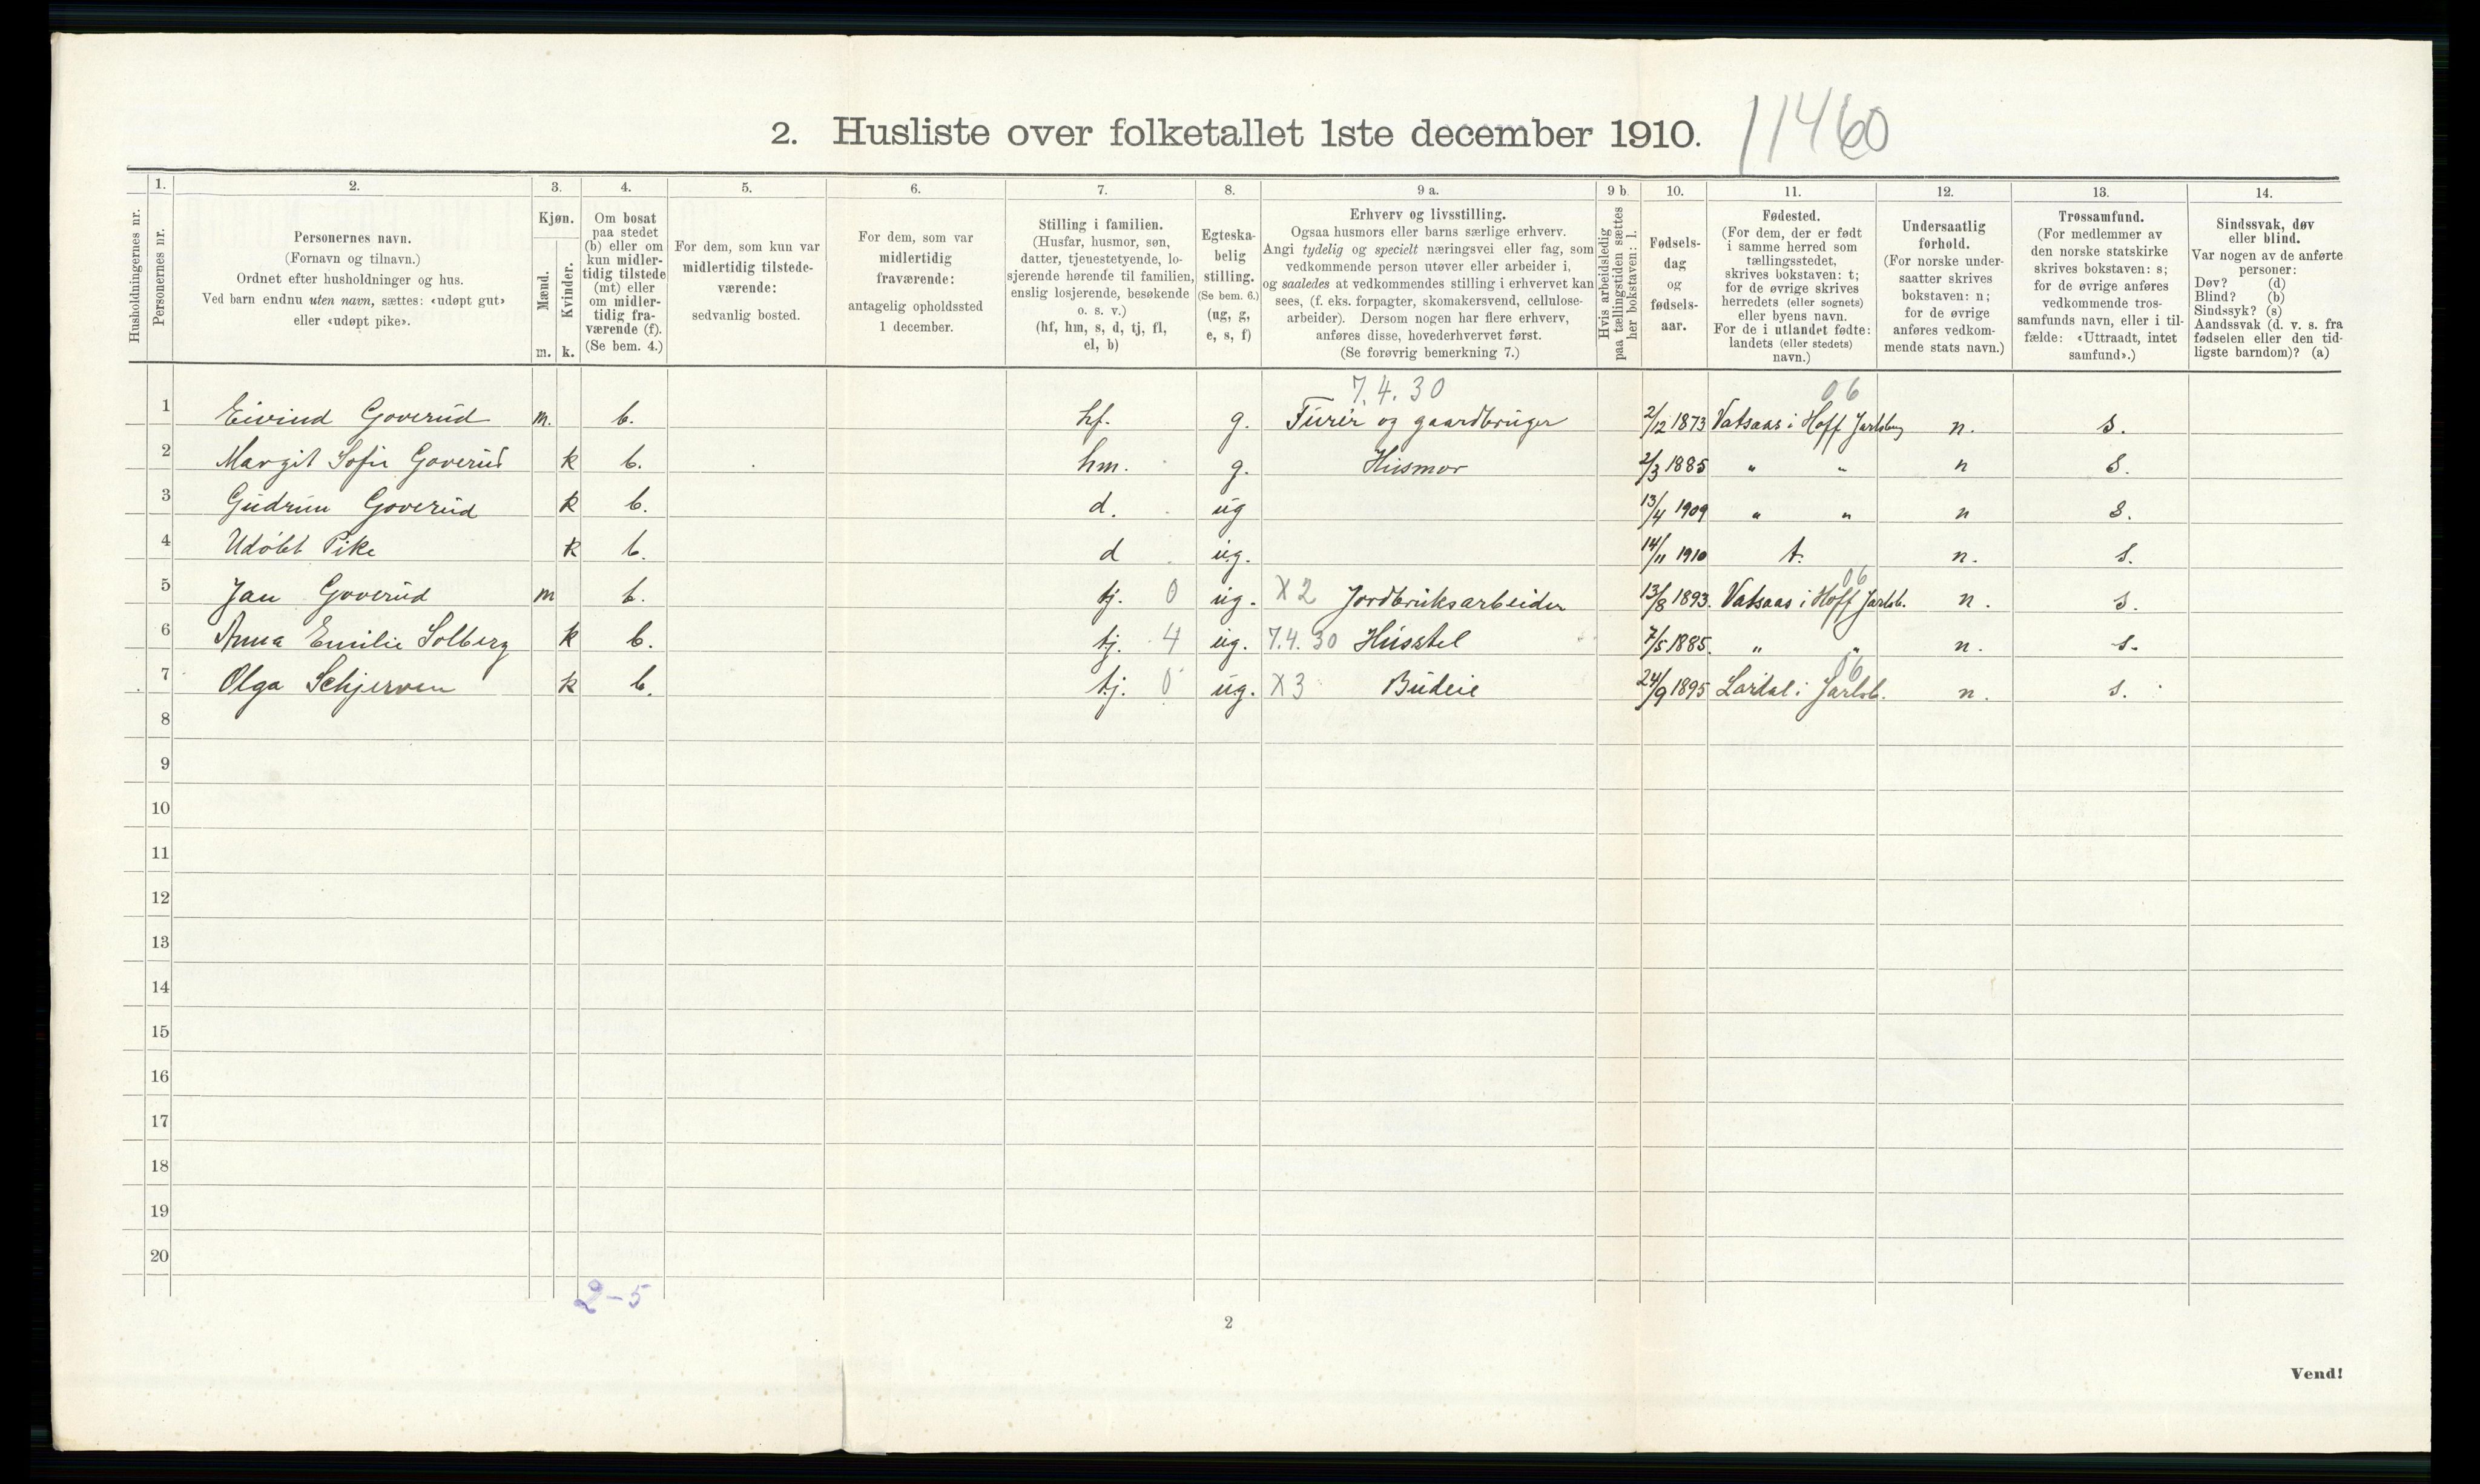 2. Husliste over folketallet 1ste december 1910. 11460
Husholdningernes nr.
1. Personernes nr.
2. Personernes navn.
(Fornavn og tilnavn.)
Ordnet efter husholdninger og hus.
Ved barn endnu uten navn, sættes: «udøpt gut»
eller «udøpt pike».
3. Kjøn.
Mænd. m.
Kvinder. k.
4. Om bosat
paa stedet
(b) eller om
kun midler-
tidig tilstede
(mt) eller
om midler-
tidig fra-
værende (f).
(Se bem. 4.)
5. For dem, som kun var
midlertidig tilstede-
værende:
sedvanlig bosted.
6. For dem, som var
midlertidig
fraværende:
antagelig opholdssted
1 december.
7. Stilling i familien.
(Husfar, husmor, søn,
datter, tjenestetyende, lo-
sjerende hørende til familien,
enslig losjerende, besøkende
o. s. v.)
(hf, hm, s, d, tj, fl,
el, b)
8. Egteska-
belig
stilling.
(Se bem. 6.)
(ug, g,
e, s, f)
9 a. Erhverv og livsstilling.
Ogsaa husmors eller barns særlige erhverv.
Angi tydelig og specielt næringsvei eller fag, som
vedkommende person utøver eller arbeider i,
og saaledes at vedkommendes stilling i erhvervet kan
sees, (f. eks. forpagter, skomakersvend, cellulose-
arbeider). Dersom nogen har flere erhverv,
anføres disse, hovederhvervet først.
(Se forøvrig bemerkning 7.)
9 b. Hvis arbeidsledig
paa tællingstiden sættes
her bokstaven: l.
10. Fødsels-
dag
og
fødsels-
aar.
11. Fødested.
(For dem, der er født
i samme herred som
tællingsstedet,
skrives bokstaven: t;
for de øvrige skrives
herredets (eller sognets)
eller byens navn.
For de i utlandet fødte:
landets (eller stedets)
navn.)
12. Undersaatlig
forhold.
(For norske under-
saatter skrives
bokstaven: n;
for de øvrige
anføres vedkom-
mende stats navn.)
13. Trossamfund.
(For medlemmer av
den norske statskirke
skrives bokstaven: s;
for de øvrige anføres
vedkommende tros-
samfunds navn, eller i til-
fælde: «Uttraadt, intet
samfund».)
14. Sindssvak, døv
eller blind.
Var nogen av de anførte
personer:
Døv? (d)
Blind? (b)
Sindssyk? (s)
Aandssvak (d. v. s. fra
fødselen eller den tid-
ligste barndom)? (a)
7.4.30 06
1 Eivind Goverud m. b. hf. g. Furér og gaardbruger 2/12 1873 Vatsaas i Hoff Jarlsberg n. s.
2 Margit Sofie Goverud k b. hm. g. Husmor 2/3 1885 " " n s.
3 Gudrun Goverud k b. d. ug 13/4 1909 " " n s.
4 Udöbt Pike k b. d ug. 14/11 1910 t. n. s.
06
5 Jan Goverud m b. tj. 0 ug. X2 Jordbruksarbeider 13/8 1893. Vatsaas i Hoff Jarlsb. n. s.
6 Anna Emilie Solberg k b. tj. 4 ug. 7.4.30 Husstel 7/5 1885. " " n. s.
06
7 Olga Schjerven k b. tj. 0 ug. X3 Budeie 24/9 1895 Lardal i Jarlsb. n. s.
8
9
10
11
12
13
14
15
16
17
18
19
20
2-5
2
Vend!